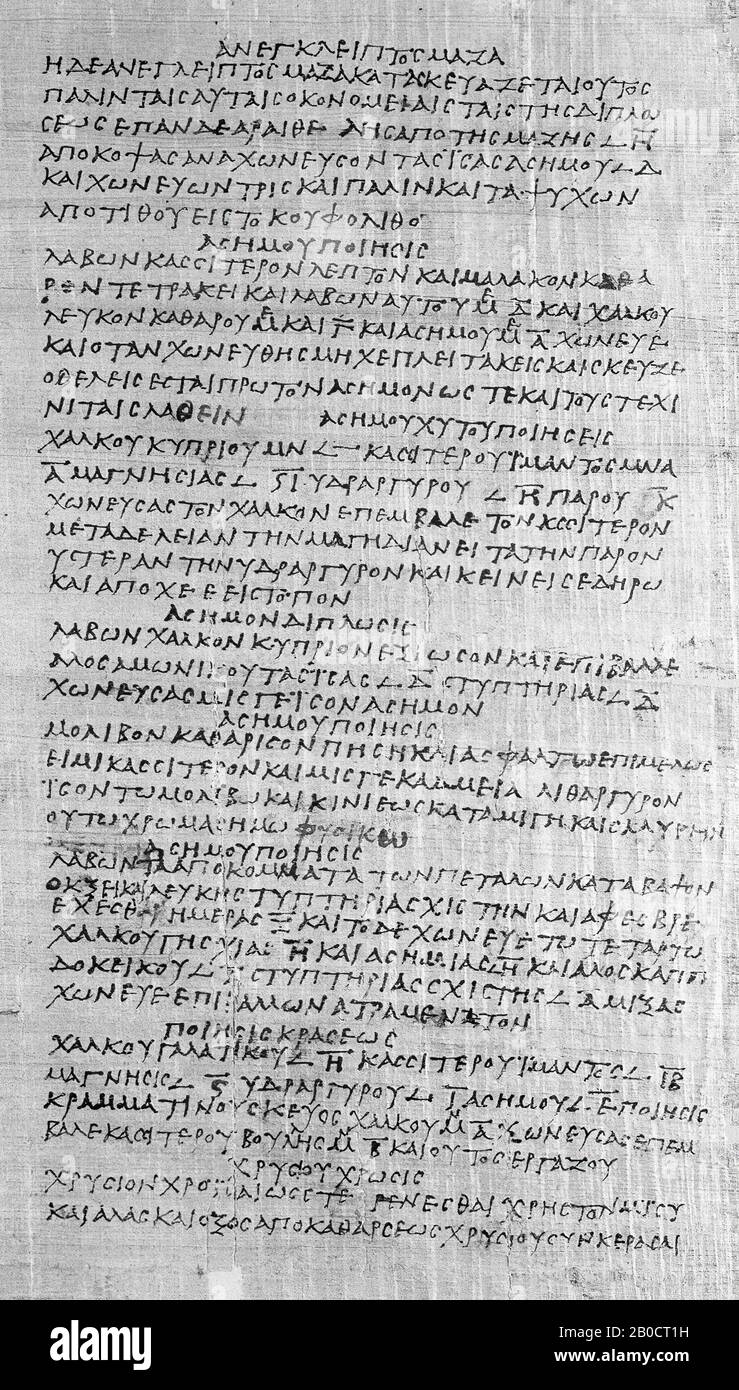 ΑΝΕΓΚΛΕΙΠΤΟϹ ΜΑΖΑ
ΗΔΕΑΝΕΓΛΕΙΠΤΟϹΜΑΖΑΚΑΤΑϹΚΕΥΑΖΕΤΑΙΟΥΤΟϹ
ΠΑΛΙΝΤΑΙϹΑΥΤΑΙϹΟΚΟΝΟΜΕΙΑΙϹΤΑΙϹΤΗϹΔΙΠΛΩ
ϹΕΩϹΕΠΑΝΔΕΑΡΑΙΘΕΛΗϹΑΠΟΤΗϹΜΑΖΗϹ 𐅻 Η̅
ΑΠΟΚΟΨΑϹΑΝΑΧΩΝΕΥϹΟΝΤΑϹΪϹΑϹΑϹΗΜΟΥ 𐅻 Δ
ΚΑΙΧΩΝΕΥΩΝΤΡΙϹΚΑΙΠΑΛΙΝΚΑΙΤΑΨΥΧΩΝ
ΑΠΟΤΙΘΟΥΕΙϹΤΟΚΟΥΦΟΛΙΘΟ
ΑϹΗΜΟΥΠΟΙΗϹΙϹ
ΛΑΒΩΝΚΑϹϹΙΤΕΡΟΝΛΕΠΤΟΝΚΑΙΜΑΛΑΚΟΝΚΑΘΑ
ΡΟΝΤΕΤΡΑΚΕΙΚΑΙΛΑΒΩΝΑΥΤΟΥΜ Δ̅ ΚΑΙΧΑΛΚΟΥ
ΛΕΥΚΟΝΚΑΘΑΡΟΥΜ ΚΑΙ Γ̅ ΚΑΙΑϹΗΜΟΥΜ Α̅ ΧΩΝΕΥΕ
ΚΑΙΟΤΑΝΧΩΝΕΥΘΗϹΜΗΧΕΠΛΕΙΤΑΚΕΙϹΚΑΙϹΚΕΥΖΕ
ΟΘΕΛΕΙϹΕϹΤΑΙΠΡΩΤΟΝΑϹΗΜΟΝΩϹΤΕΚΑΙΤΟΥϹΤΕΧΙ
ΝΙΤΑΙϹΛΑΘΕΙΝ ΑϹΗΜΟΥΧΥΤΟΥΠΟΙΗϹΕΙϹ
ΧΑΛΚΟΥΚΥΠΡΙΟΥΜΝ 𐅻 ΚΑϹϹΙΤΕΡΟΥΪΜΑΝΤΟϹΜΝΑ
Α̅ ΜΑΓΝΗϹΙΑϹ 𐅻 ϚΙ ΥΔΡΑΡΓΥΡΟΥ 𐅻 Η̅ ΠΑΡΟΥ Κ̅
ΧΩΝΕΥϹΑϹΤΟΝΧΑΛΚΟΝΕΠΕΜΒΑΛΕΤΟΝΚϹϹΙΤΕΡΟΝ
ΜΕΤΑΔΕΛΕΙΑΝΤΗΝΜΑΓΗΔΙΑΝΕΙΤΑΤΗΝΠΑΡΟΝ
ΥϹΤΕΡΑΝΤΗΝΥΔΡΑΡΓΥΡΟΝΚΑΙΚΕΙΝΕΙϹΕΔΗΡΩ
ΚΑΙΑΠΟΧΕΕΕΙϹΤΟΠΟΝ
ΑϹΗΜΟΝΔΙΠΛΩϹΙϹ
ΛΑΒΩΝΧΑΛΚΟΝΚΥΠΡΙΟΝΕΞΙΩϹΟΝΚΑΙΕΠΙΒΑΛΛΕ
ΑΛΟϹΑΜΩΝΙΚΟΥΤΑϹΪϹΑϹ 𐅻 Δ̅ ϹΤΥΠΤΗΡΙΑϹ 𐅻 Δ̅
ΧΩΝΕΥϹΑϹΜΙϹΓΕΪϹΟΝΑϹΗΜΟΝ
ΑϹΗΜΟΥΠΟΙΗϹΙϹ
ΜΟΛΙΒΟΝΚΑΘΑΡΙϹΟΝΠΗϹΗΚΑΙΑϹΦΑΛΤΩΕΠΙΜΕΛΩϹ
ΕΙΜΙΚΑϹϹΙΤΕΡΟΝΚΑΙΜΙϹΓΕΚΑΔΜΕΙΑ ΛΙΘΑΡΓΥΡΟΝ
ΪϹΟΝΤΩΜΟΛΙΒΩΚΑΙΚΙΝΙΕΩϹΚΑΤΑΜΙΓΗΚΑΙϹΚΛΥΡΗΝ
ΟΥΤΩΧΡΩΜΑϹΗΜΩ ΦΥϹΙΚΩ
ΑϹΗΜΟΥΠΟΙΗϹΙϹ
ΛΑΒΩΝΤΑΑΠΟΚΟΜΜΑΤΑΤΩΝΠΕΤΑΛΩΝΚΑΤΑΒΑΨΟΝ
ΟΚΞΕΙΚΑΙΛΕΥΚΗϹΤΥΠΤΗΡΙΑϹΧΙϹΤΗΝΚΑΙΑΦΕϹΒΡΕ
ΕΧΕϹΘΑΙΗΜΕΡΑϹ Ζ̅ ΚΑΙΤΟΔΕΧΩΝΕΥΕΤΩΤΕΤΑΡΤΩ
ΧΑΛΚΟΥΓΗϹΧΙΑϹ Η̅ ΚΑΙΑϹΗΜΙΑϹ 𐅻 Η̅ ΚΑΙΑΛΟϹΚΑΠΠ
ΔΟΚΕΙΚΟΥ 𐅻 Α̅ ϹΤΥΠΤΗΡΙΑϹϹΧΙϹΤΗϹ 𐅻 Α̅ ΜΙΞΑϹ
ΧΩΝΕΥΕΕΠΙΒΑΛΛΩΝΑΤΡΑΜΕΝΑΤΟΝ
ΠΟΙΗϹΙϹΚΡΑϹΕΩϹ
ΧΑΛΚΟΥΓΑΛΑΤΙΚΟΥ 𐅻 Η̅ ΚΑϹϹΙΤΕΡΟΥΪΜΑΝΤΟϹ 𐅻 ΙΒ̅
ΜΑΓΝΗϹΙϹ 𐅻 Ϛ̅ ΥΔΡΑΡΓΥΡΟΥ 𐅻 Ι̅ ΑϹΗΜΟΥ 𐅻 Ε̅ ΠΟΙΗϹΙϹ
ΚΡΑΜΜΑΤΙΝΟΥϹΚΕΥΟϹΧΑΛΚΟΥΜ Α̅ ΧΩΝΕΥϹΑϹΕΠΕΜ
ΒΑΛΕΚΑϹΙΤΕΡΟΥΒΟΥΛΗϹΜ Β̅ ΚΑΙΟΥΤΟϹΕΡΓΑΖΟΥ
ΧΡΥϹΟΥΧΡΩϹΙϹ
ΧΡΥϹΙΟΝΧΡΟΠΑΙΩϹΤΕ ΓΕΝΕϹΘΑΙΧΡΗϹΤΟΝΜΙϹΥ
ΚΑΙΑΛΑϹΚΑΙΟΞΟϹΑΠΟΚΑΘΑΡϹΕΩϹΧΡΥϹΙΟΥϹΥΝΚΕΡΑϹΑΙ
alamy
Image ID: 2B0CT1H
www.alamy.com